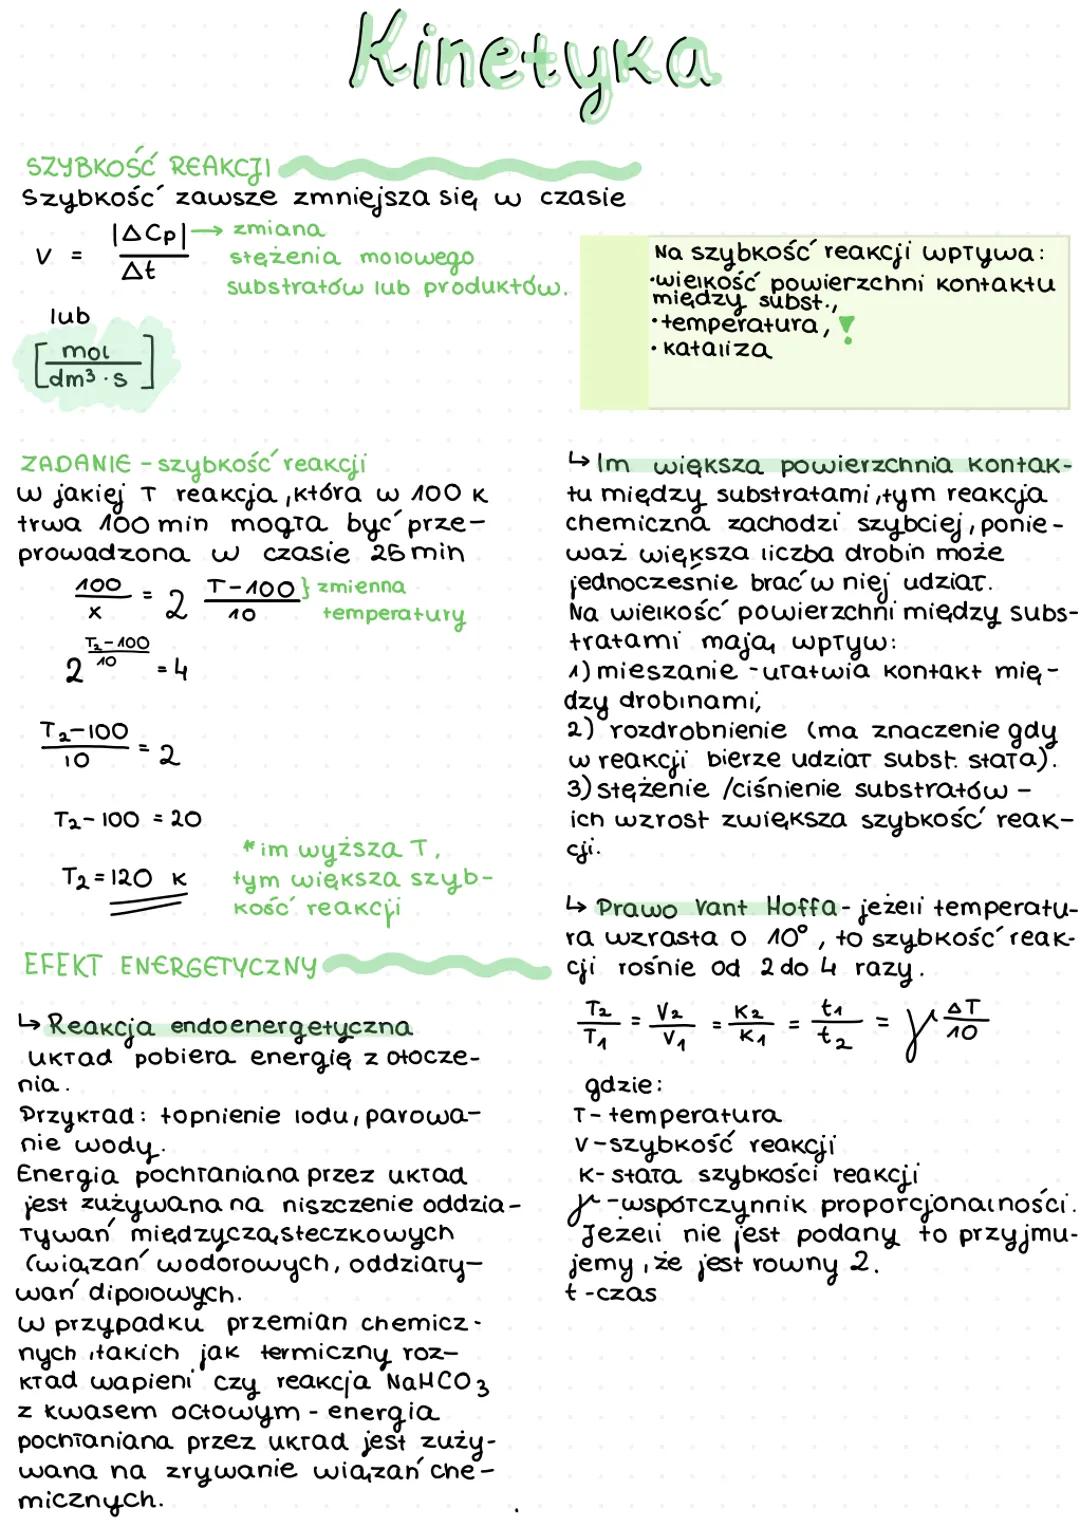 Kinetyka
SZYBKOŚĆ REAKCJI
Szybkość zawsze zmniejsza się w czasie
V = |ΔCp| / Δt → zmiana
stężenia molowego
substratów lub produktów.
lub
[mol / dm³·s]
Na szybkość reakcji wpływa:
•wielkość powierzchni kontaktu
między subst.,
•temperatura,
•kataliza
ZADANIE - szybkość reakcji
w jakiej T reakcja, która w 100 K
trwa 100 min mogła być prze-
prowadzona w czasie 25 min
100/x = 2 T-100/10 } zmienna
temperatury
2^(T₂-100/10) = 4
T₂-100/10 = 2
T₂-100 = 20
T₂=120 K
*im wyższa T,
tym większa szyb-
kość reakcji
EFEKT ENERGETYCZNY
↳ Reakcja endoenergetyczna
układ pobiera energię z otocze-
nia.
Przykład: topnienie lodu, parowa-
nie wody.
Energia pochłaniana przez układ
jest zużywana na niszczenie oddzia-
ływań międzycząsteczkowych
(wiązań wodorowych, oddziały-
wań dipolowych.
w przypadku przemian chemicz-
nych, takich jak termiczny roz-
kład wapieni czy reakcja NaHCO₃
z kwasem octowym - energia
pochłaniana przez układ jest zuży-
wana na zrywanie wiązań che-
micznych.
↳ Im większa powierzchnia kontak-
tu między substratami, tym reakcja
chemiczna zachodzi szybciej, ponie-
waż większa liczba drobin może
jednocześnie brać w niej udział.
Na wielkość powierzchni między subs-
tratami mają wpływ:
1) mieszanie - ułatwia kontakt mię-
dzy drobinami,
2) rozdrobnienie (ma znaczenie gdy
w reakcji bierze udział subst. stała).
3) stężenie /ciśnienie substratów -
ich wzrost zwiększa szybkość reak-
cji.
↳ Prawo Vant Hoffa - jeżeli temperatu-
ra wzrasta o 10°, to szybkość reak-
cji rośnie od 2 do 4 razy.
T₂/T₁ = V₂/V₁ = K₂/K₁ = t₁/t₂ = γ ΔT/10
gdzie:
T - temperatura
V - szybkość reakcji
K - stała szybkości reakcji
γ - współczynnik proporcjonalności.
Jeżeli nie jest podany to przyjmu-
jemy, że jest równy 2.
t - czas